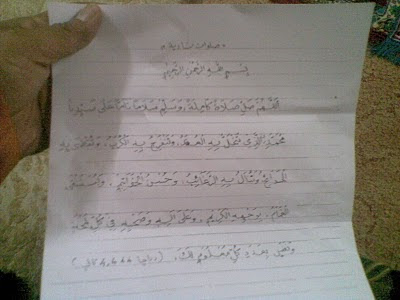 صلوات ناريه
بِسْمِ اللهِ الرَّحْمٰنِ الرَّحِيْمِ
اَللّٰهُمَّ صَلِّ صَلَاةً كَامِلَةً وَسَلِّمْ سَلَامًا تَامًّا عَلٰى سَيِّدِنَا
مُحَمَّدٍ الَّذِيْ تَنْحَلُّ بِهِ الْعُقَدُ وَتَنْفَرِجُ بِهِ الْكُرَبُ وَتُقْضٰى بِهِ
الْحَوَائِجُ وَتُنَالُ بِهِ الرَّغَائِبُ وَحُسْنُ الْخَوَاتِمِ وَيُسْتَسْقَى
الْغَمَامُ بِوَجْهِهِ الْكَرِيْمِ وَعَلٰى اٰلِهِ وَصَحْبِهِ فِيْ كُلِّ لَمْحَةٍ
وَنَفَسٍ بِعَدَدِ كُلِّ مَعْلُوْمٍ (دباچا 4444 كالي)